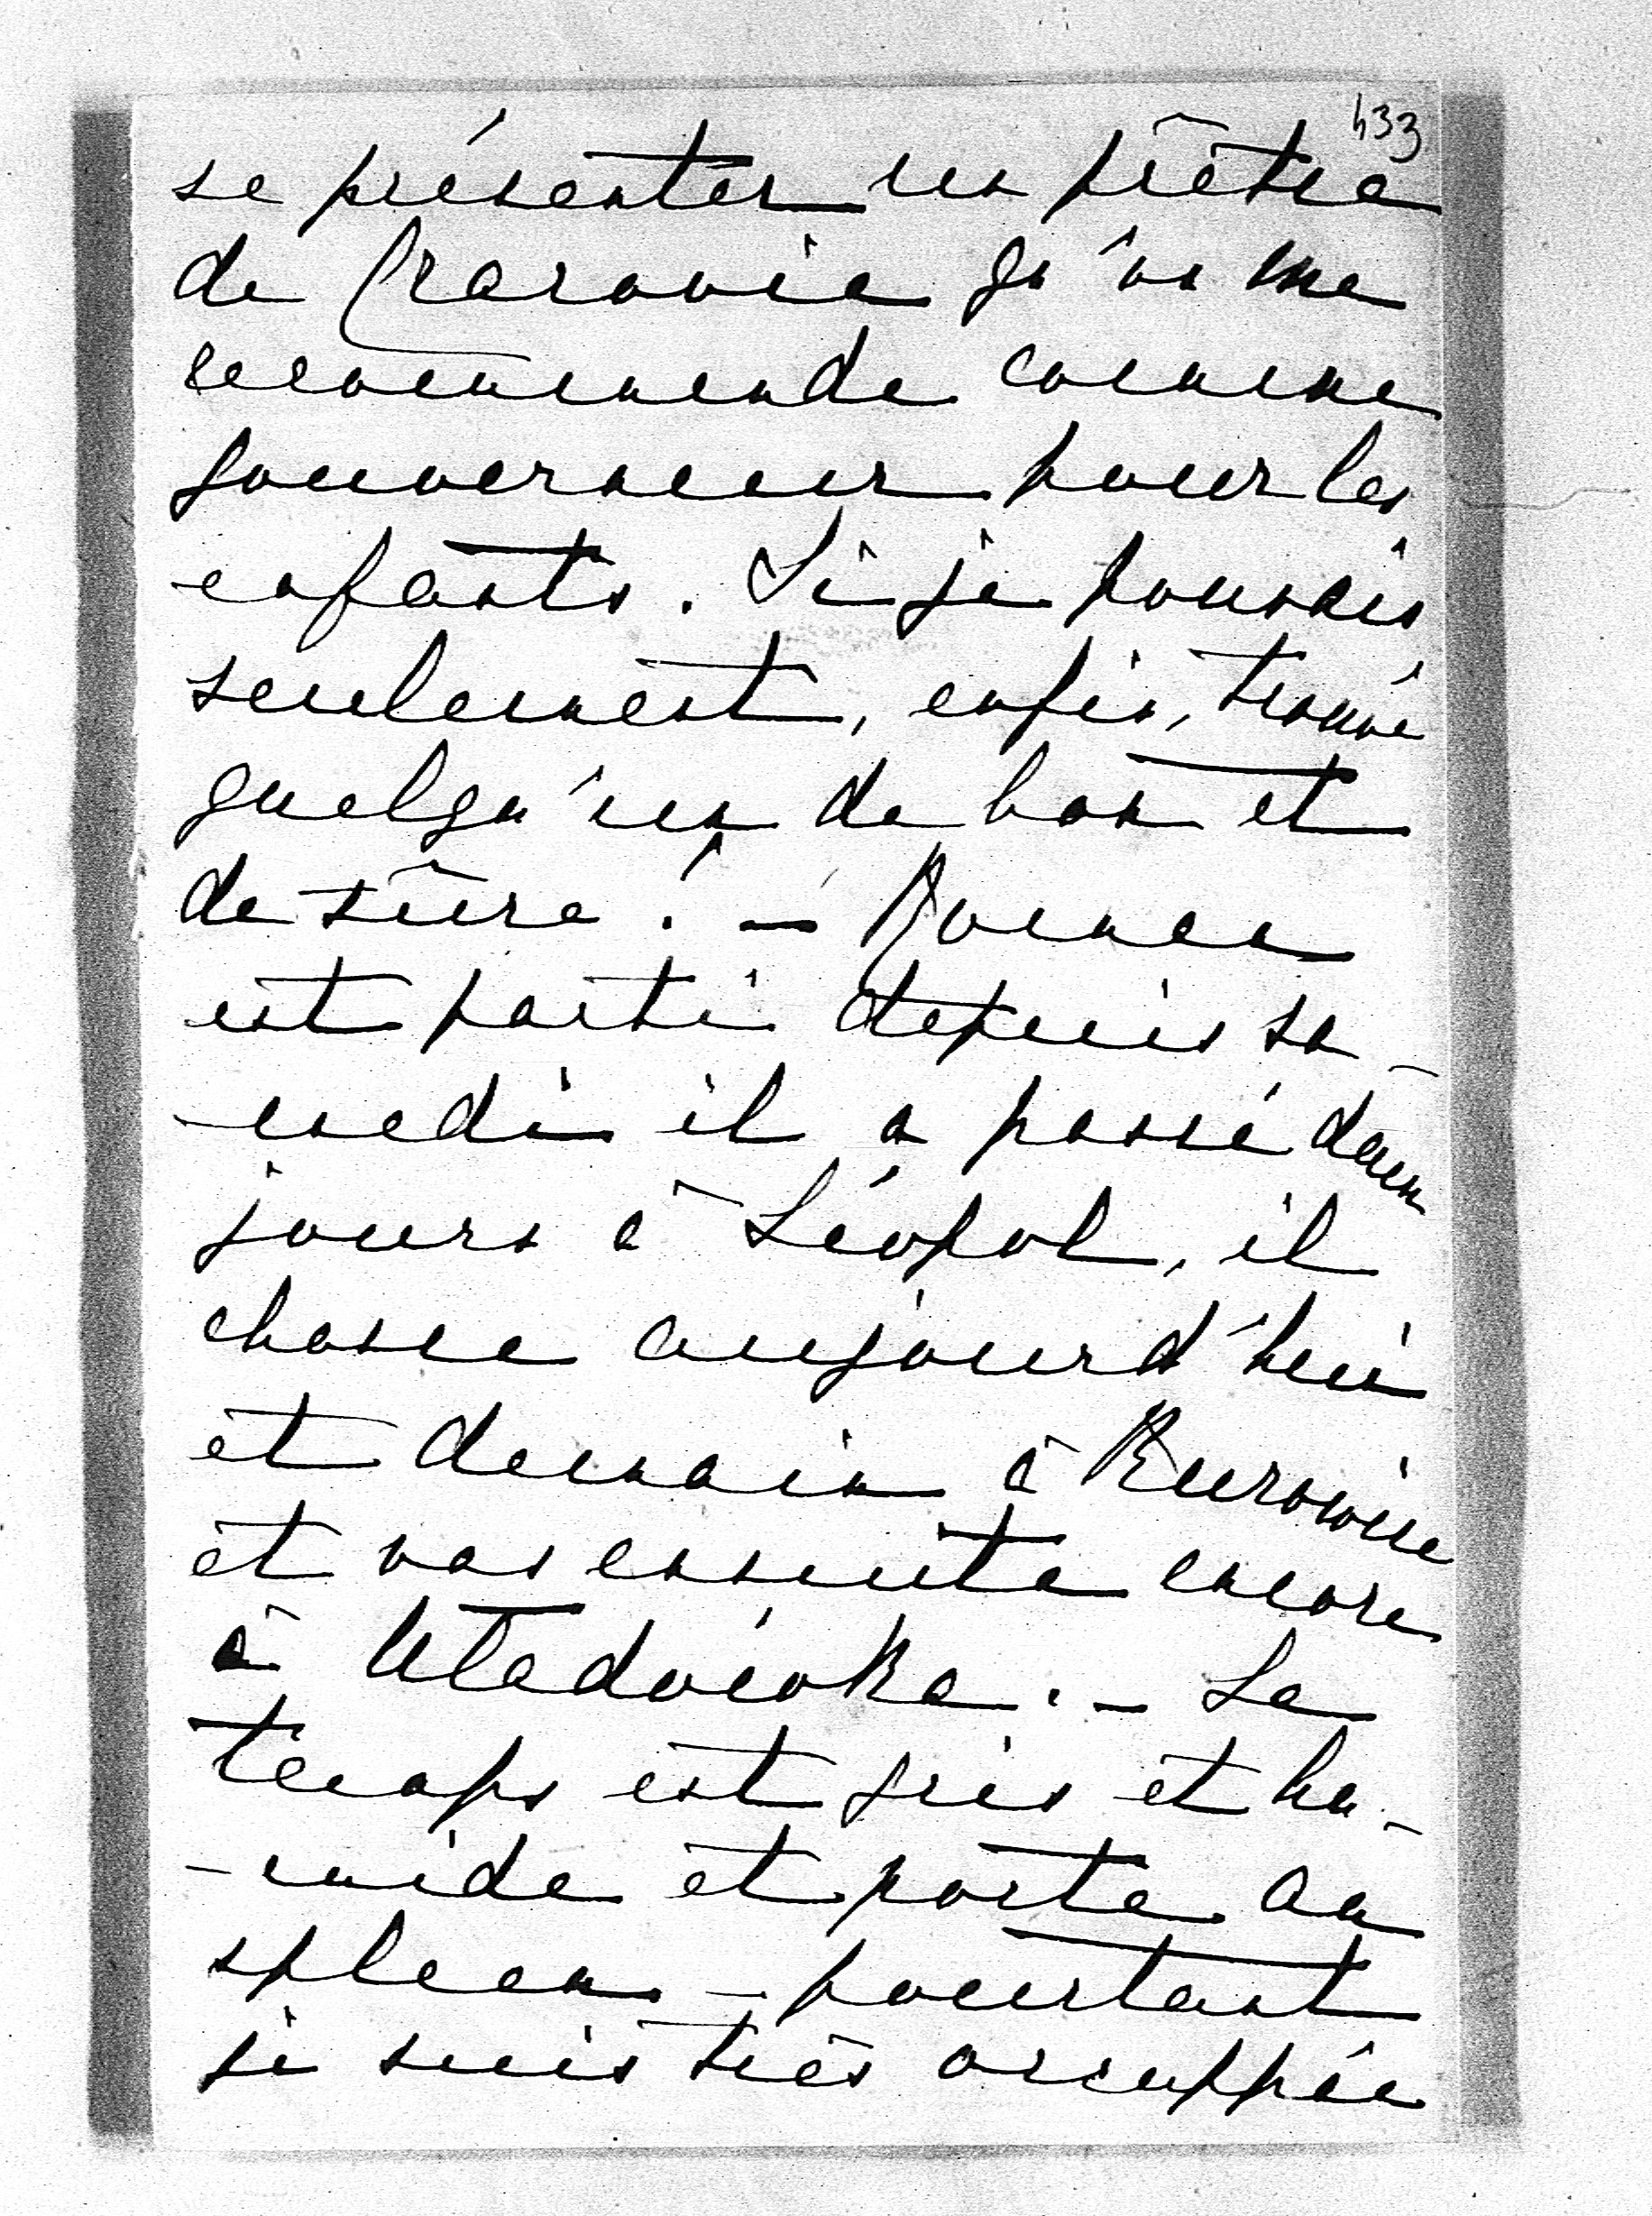 433
se présenter un prêtre
de Cracovie qu'on me
recommande comme
gouverneur pour les
enfants. Si je pouvais
seulement, enfin, trouvé
quelqu'un de bon et
de sûre! — Roman
est parti depuis sa-
-medi il a passé deux
jours à Léopol, il
chasse aujourd'hui
et demain à Kurowice
et vas ensuite encore
à Uładówka. — Le
temps est gris et hu-
-mide et porte au
spleen — pourtant
je suis très occuppée